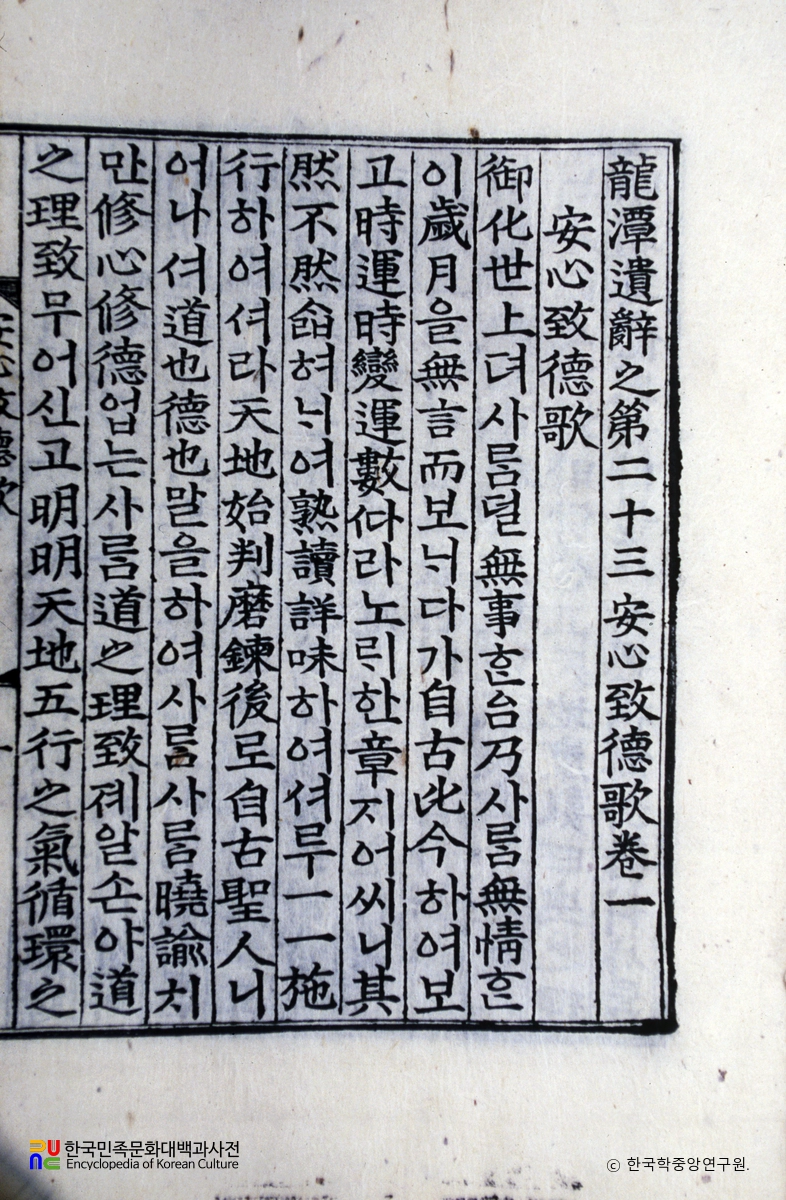 龍潭遺辭之第二十三安心致德歌卷一
安心致德歌
御化世上뎌사ᄅᆞᆷ덜無事ᄒᆞᆫ음乃사ᄅᆞᆷ無情ᄒᆞᆫ
이歲月을無言而보ᄂᆡ다가自古比今하여보
고時運時變運數ᄯᅡ라노ᄅᆡ한章지어씨니其
然不然 혀ᄂᆡ여熟讀詳味하여셔루一一施
行하여셔라天地始判磨鍊後로自古聖人니
어나셔道也德也말을하여사ᄅᆞᆷ사ᄅᆞᆷ曉諭치
만修心修德업는사ᄅᆞᆷ道之理致졔알손야道
之理致무어신고明明天地五行之氣循環之
安心致德歌
一
한국민족문화대백과사전
Encyclopedia of Korean Culture
ⓒ 한국학중앙연구원.